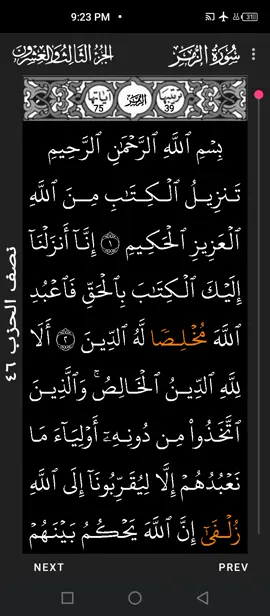 9:23 PM
سُورَةُ الزُّمَرِ
الجزء الثالث والعشرون
ترتيبها 39
الزمر
آياتها 75
بِسْمِ ٱللَّهِ ٱلرَّحْمَٰنِ ٱلرَّحِيمِ
تَنزِيلُ ٱلْكِتَٰبِ مِنَ ٱللَّهِ
ٱلْعَزِيزِ ٱلْحَكِيمِ ١ إِنَّآ أَنزَلْنَآ
إِلَيْكَ ٱلْكِتَٰبَ بِٱلْحَقِّ فَٱعْبُدِ
ٱللَّهَ مُخْلِصًا لَّهُ ٱلدِّينَ ٢ أَلَا
لِلَّهِ ٱلدِّينُ ٱلْخَالِصُ ۚ وَٱلَّذِينَ
ٱتَّخَذُوا۟ مِن دُونِهِۦٓ أَوْلِيَآءَ مَا
نَعْبُدُهُمْ إِلَّا لِيُقَرِّبُونَآ إِلَى ٱللَّهِ
زُلْفَىٰٓ إِنَّ ٱللَّهَ يَحْكُمُ بَيْنَهُمْ
نصف الحزب ٤٦
NEXT
PREV